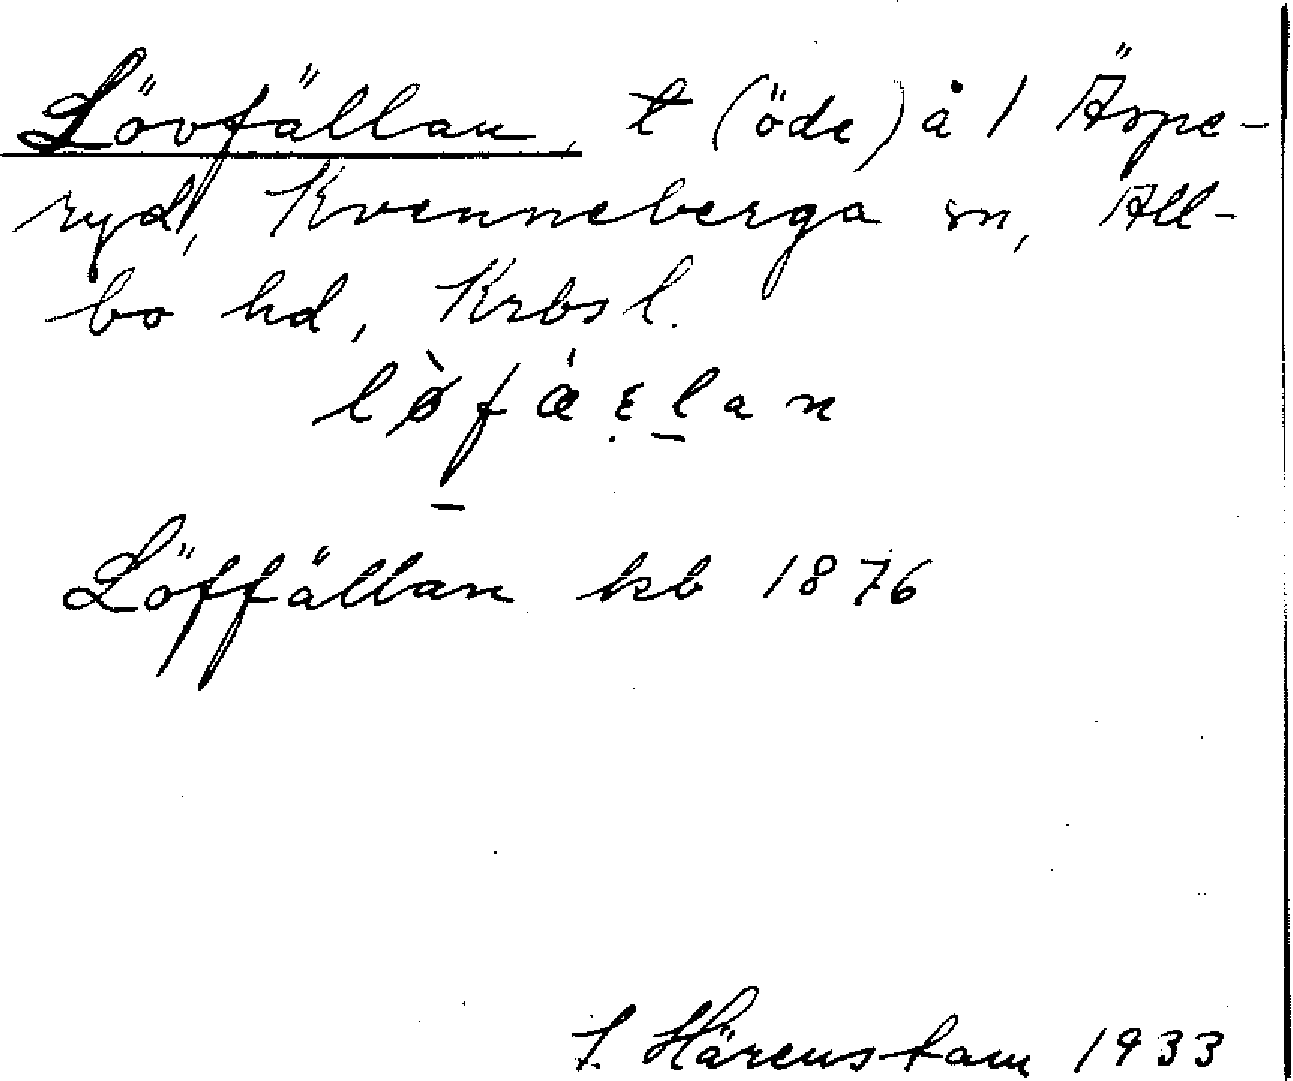 Lövfällan, t (öde) å 1 Äspe-
ryd, Kvenneberga sn, All-
bo hd, Krbsl.
lø̀fǽɛlan
Löffällan kb 1876
Härenstam 1933